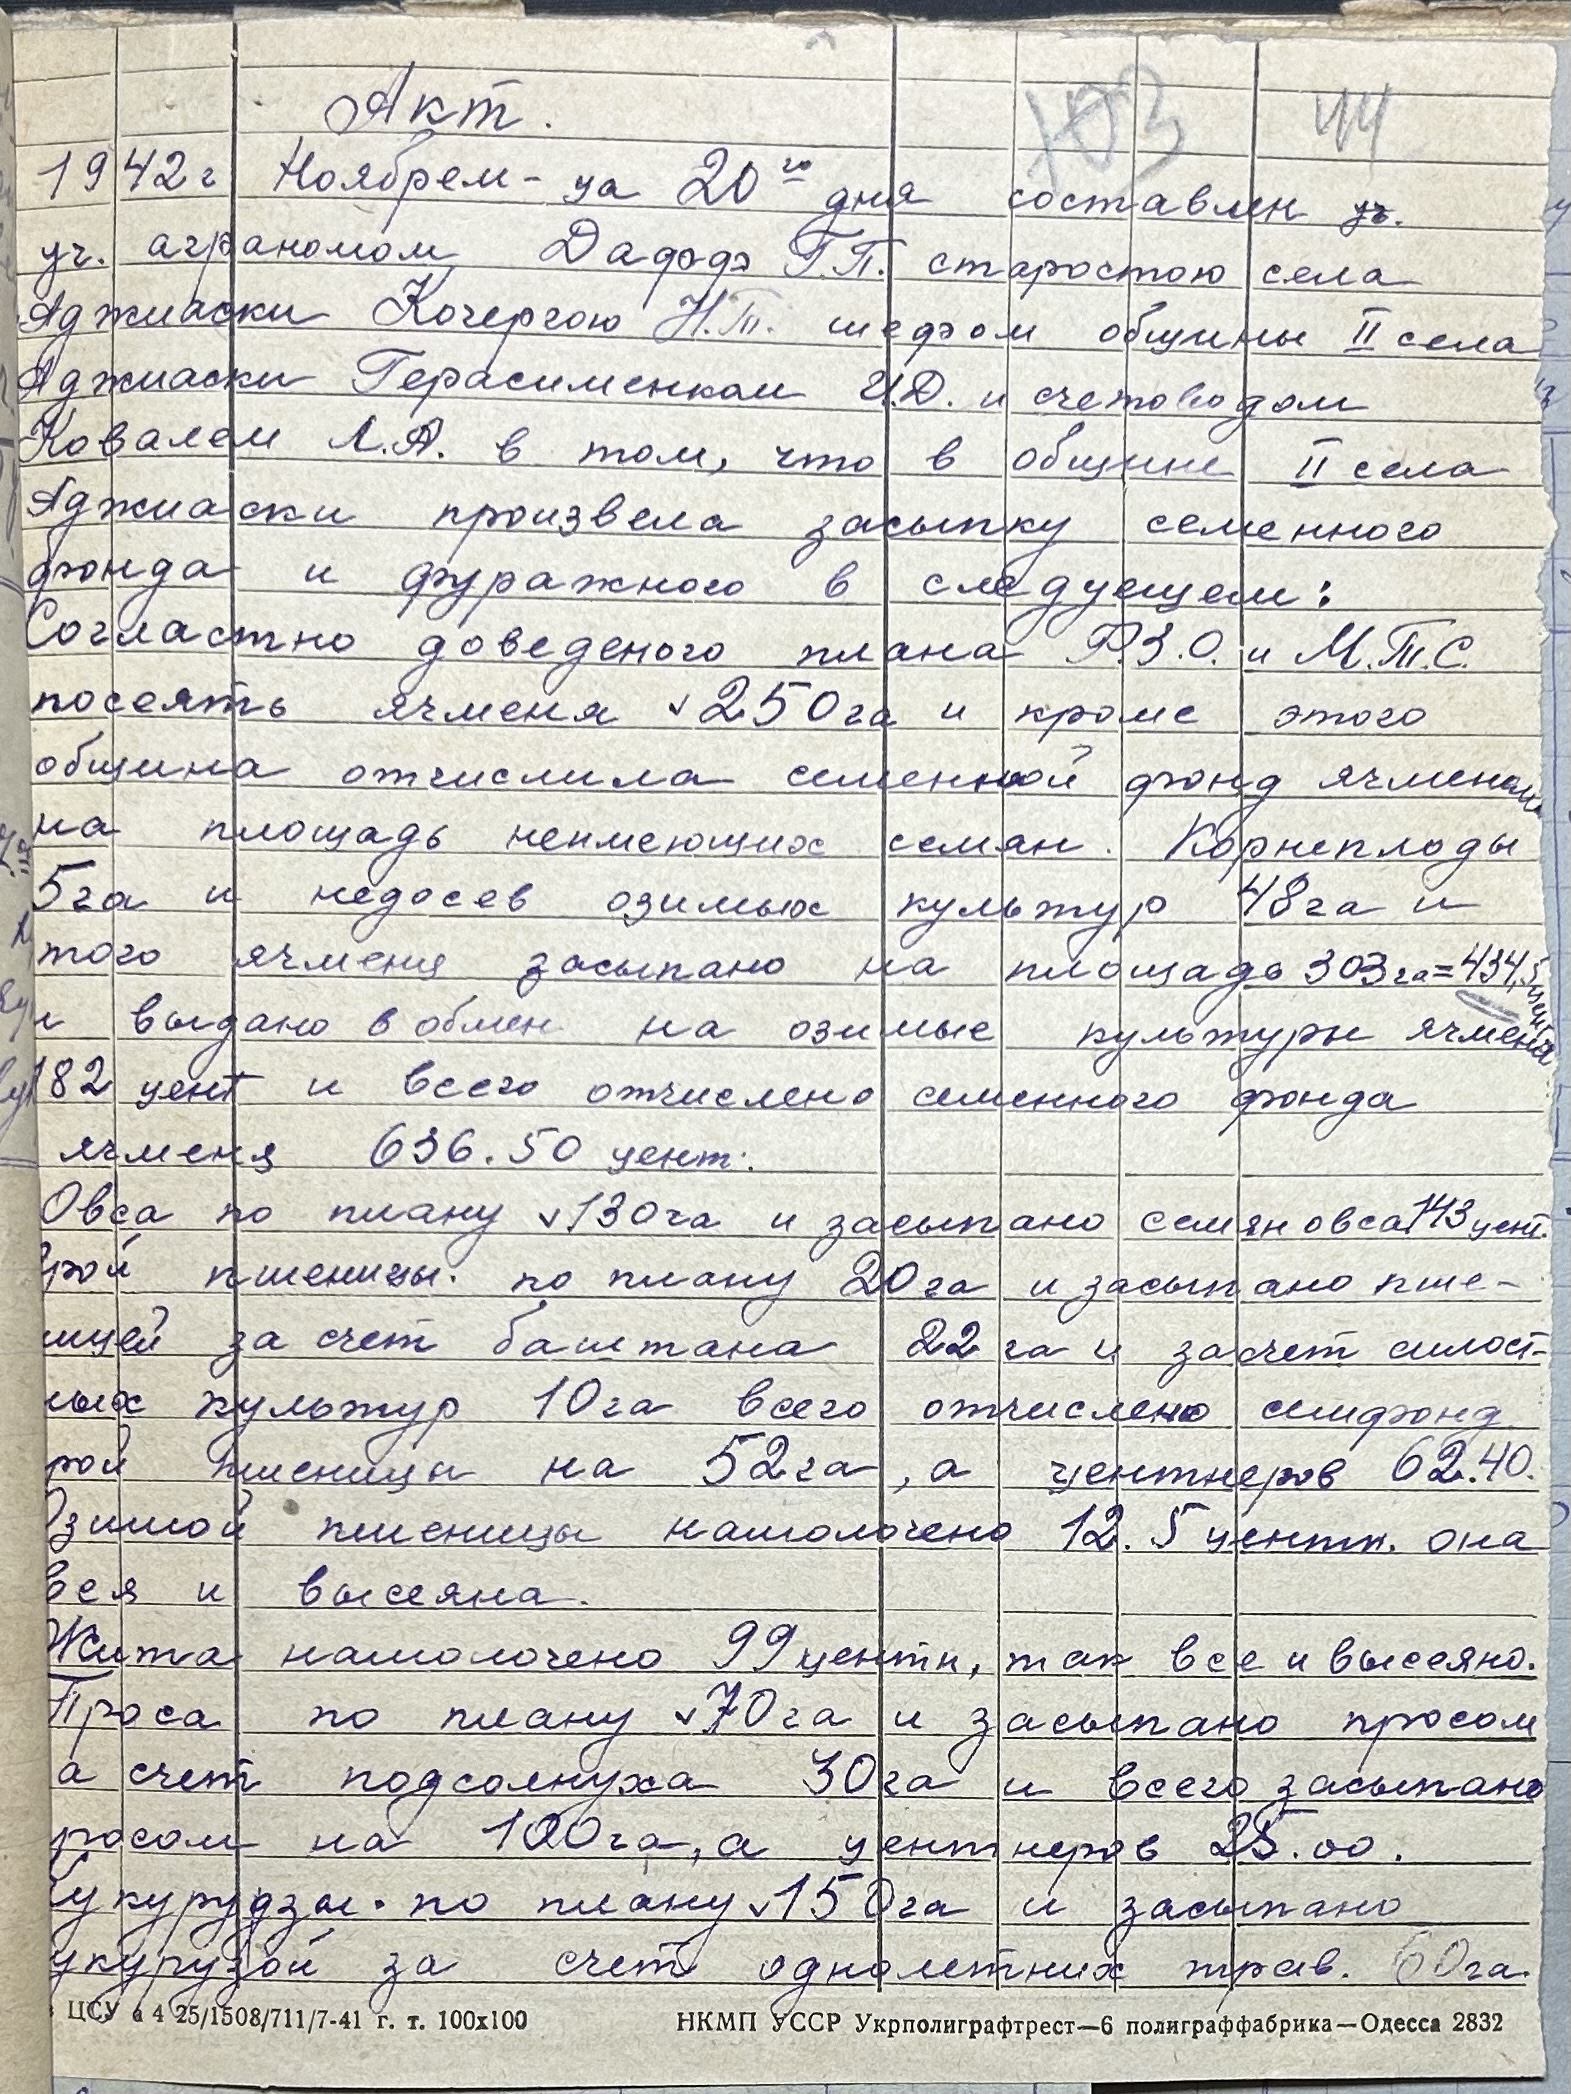 Акт.
103 44
1942 г Ноябрем-ца 20го дня составлен уч.
уч. аграномом Дафодэ Г.П. старостою села
Аджиаски Кочергою Н.Т. шефом общины II села
Аджиаски Герасименком И.D. и счетоводом
Ковалем Л.А. в том, что в общине II села
Аджиаски произвела засыпку семенного
фонда и фуражного в следуещем:
Согластно доведеного плана Р.З.О. и М.Т.С.
посеять ячменя v 250 га и кроме этого
община отчислила семенной фонд ячменем
на площадь неимеющих семян. Корнеплоды
5 га и недосев озимых культур 48 га и
того ячменя засыпано на площадь 303 га = 434,5 цент
и выдано в обмен на озимые культуры ячменя
182 цент и всего отчислено семенного фонда
ячменя 636.50 цент.
Овса по плану v 130 га и засыпано семян овса 143 цент.
рой пшеницы. по плану 20 га и засыпано пше-
ицей за счет баштана 22 га и за счет силост-
ных культур 10 га всего отчислено семфонд
рой пшеницы на 52 га, а центнеров 62.40.
Озимой пшеницы намолочено 12.5 центн. она
вся и высеяна.
Жита намолочено 99 центн, так все и высеяно.
Проса по плану v 70 га и засыпано просом
а счет подсолнуха 30 га и всего засыпано
росом на 100 га, а центнеров 25.00.
укурудзы. по плану v 150 га и засыпано
укурузой за счет однолетних трав. 60 га.
ЦСУ в 4 25/1508/711/7-41 г. т. 100х100 НКМП УССР Укрполиграфтрест—6 полиграффабрика—Одесса 2832